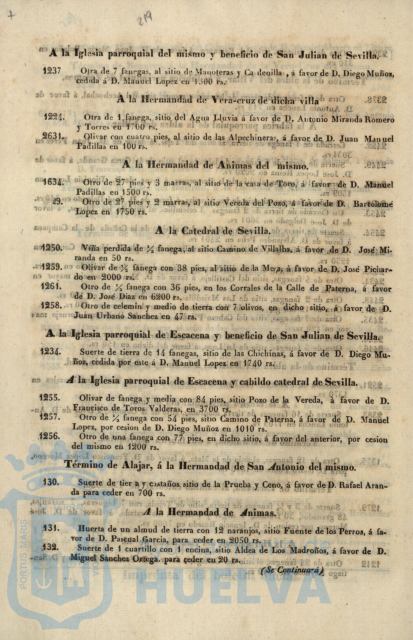 7
219
A la Iglesia parroquial del mismo y beneficio de San Julian de Sevilla.
1237 Otra de 7 fanegas, al sitio de Manoteras y , á favor de D. Diego Muñoz,
cedida á D. Manuel Lopez en 1500 rs.
A la Hermandad de Vera-cruz de dicha villa
1224. Otra de 1 fanega, sitio del Agua Lluvia á favor de D. Antonio Miranda Romero
y Torres en 1700 rs.
2631. Olivar con cuatro pies, al sitio de las Alpechineras, á favor de D. Juan Manuel
Padillas en 100 rs.
A la Hermandad de Animas del mismo.
1634. Otro de 27 pies y 3 marras, al sitio de la casa de Toro, á favor de D. Manuel
Padillas en 1500 rs.
29. Otro de 27 pies y 2 marras, al sitio Vereda del Pozo, á favor de D. Bartolomé
Lopez en 1750 rs.
A la Catedral de Sevilla.
1250. Viña perdida de ½ fanega, al sitio Camino de Villalba, á favor de D. José Mi-
randa en 50 rs.
1259. Olivar de ½ fanega con 38 pies, al sitio de la Moya, á favor de D. José Pichar-
do en 2000 rs.
1261. Otro de ½ fanega con 36 pies, en los Corrales de la Calle de Paterna, á favor
de D. José Diaz en 6200 rs.
1258. Otro de celemin y medio de tierra con 7 olivos, en dicho sitio, á favor de D.
Juan Urbano Sanchez en 47 rs.
A la Iglesia parroquial de Escacena y beneficio de San Julian de Sevilla.
1234. Suerte de tierra de 14 fanegas, sitio de las Chichinas, á favor de D. Diego Mu-
ñoz, cedida por este á D. Manuel Lopez en 1740 rs.
A la Iglesia parroquial de Escacena y cabildo catedral de Sevilla.
1255. Olivar de fanega y media con 84 pies, sitio Pozo de la Vereda, á favor de D.
Francisco de Toros Valderas, en 3700 rs.
1257. Otro de ½ fanega con 54 pies, sitio Camino de Paterna, á favor de D. Manuel
Lopez, por cesion de D. Diego Muñoz en 1010 rs.
1256. Otro de una fanega con 77 pies, en dicho sitio, á favor del anterior, por cesion
del mismo en 1200 rs.
Término de Alajar, á la Hermandad de San Antonio del mismo.
130. Suerte de tierra y castaños sitio de la Prueba y Ceno, á favor de D. Rafael Aran-
da para ceder en 700 rs.
A la Hermandad de Animas.
131. Huerta de un almud de tierra con 12 naranjos, sitio Fuente de los Perros, á fa-
vor de D. Pascual Garcia, para ceder 2050 rs.
132. Suerte de 1 cuartillo con 1 encina, sitio Aldea de Los Madroños, á favor de D.
Miguel Sanchez Ortega para ceder en 20 rs.
(Se Continuará)
PORTUS MARIS
HUELVA